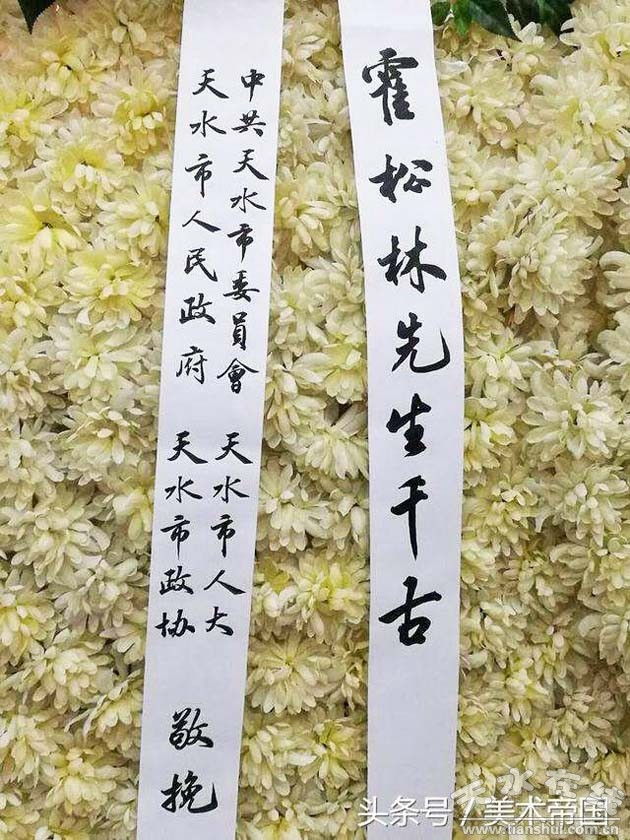 霍松林先生千古
中共天水市委員會 天水市人大
天水市人民政府 天水市政协
敬挽
天水在线
头条号／美术帝国
www.tianshui.com.cn